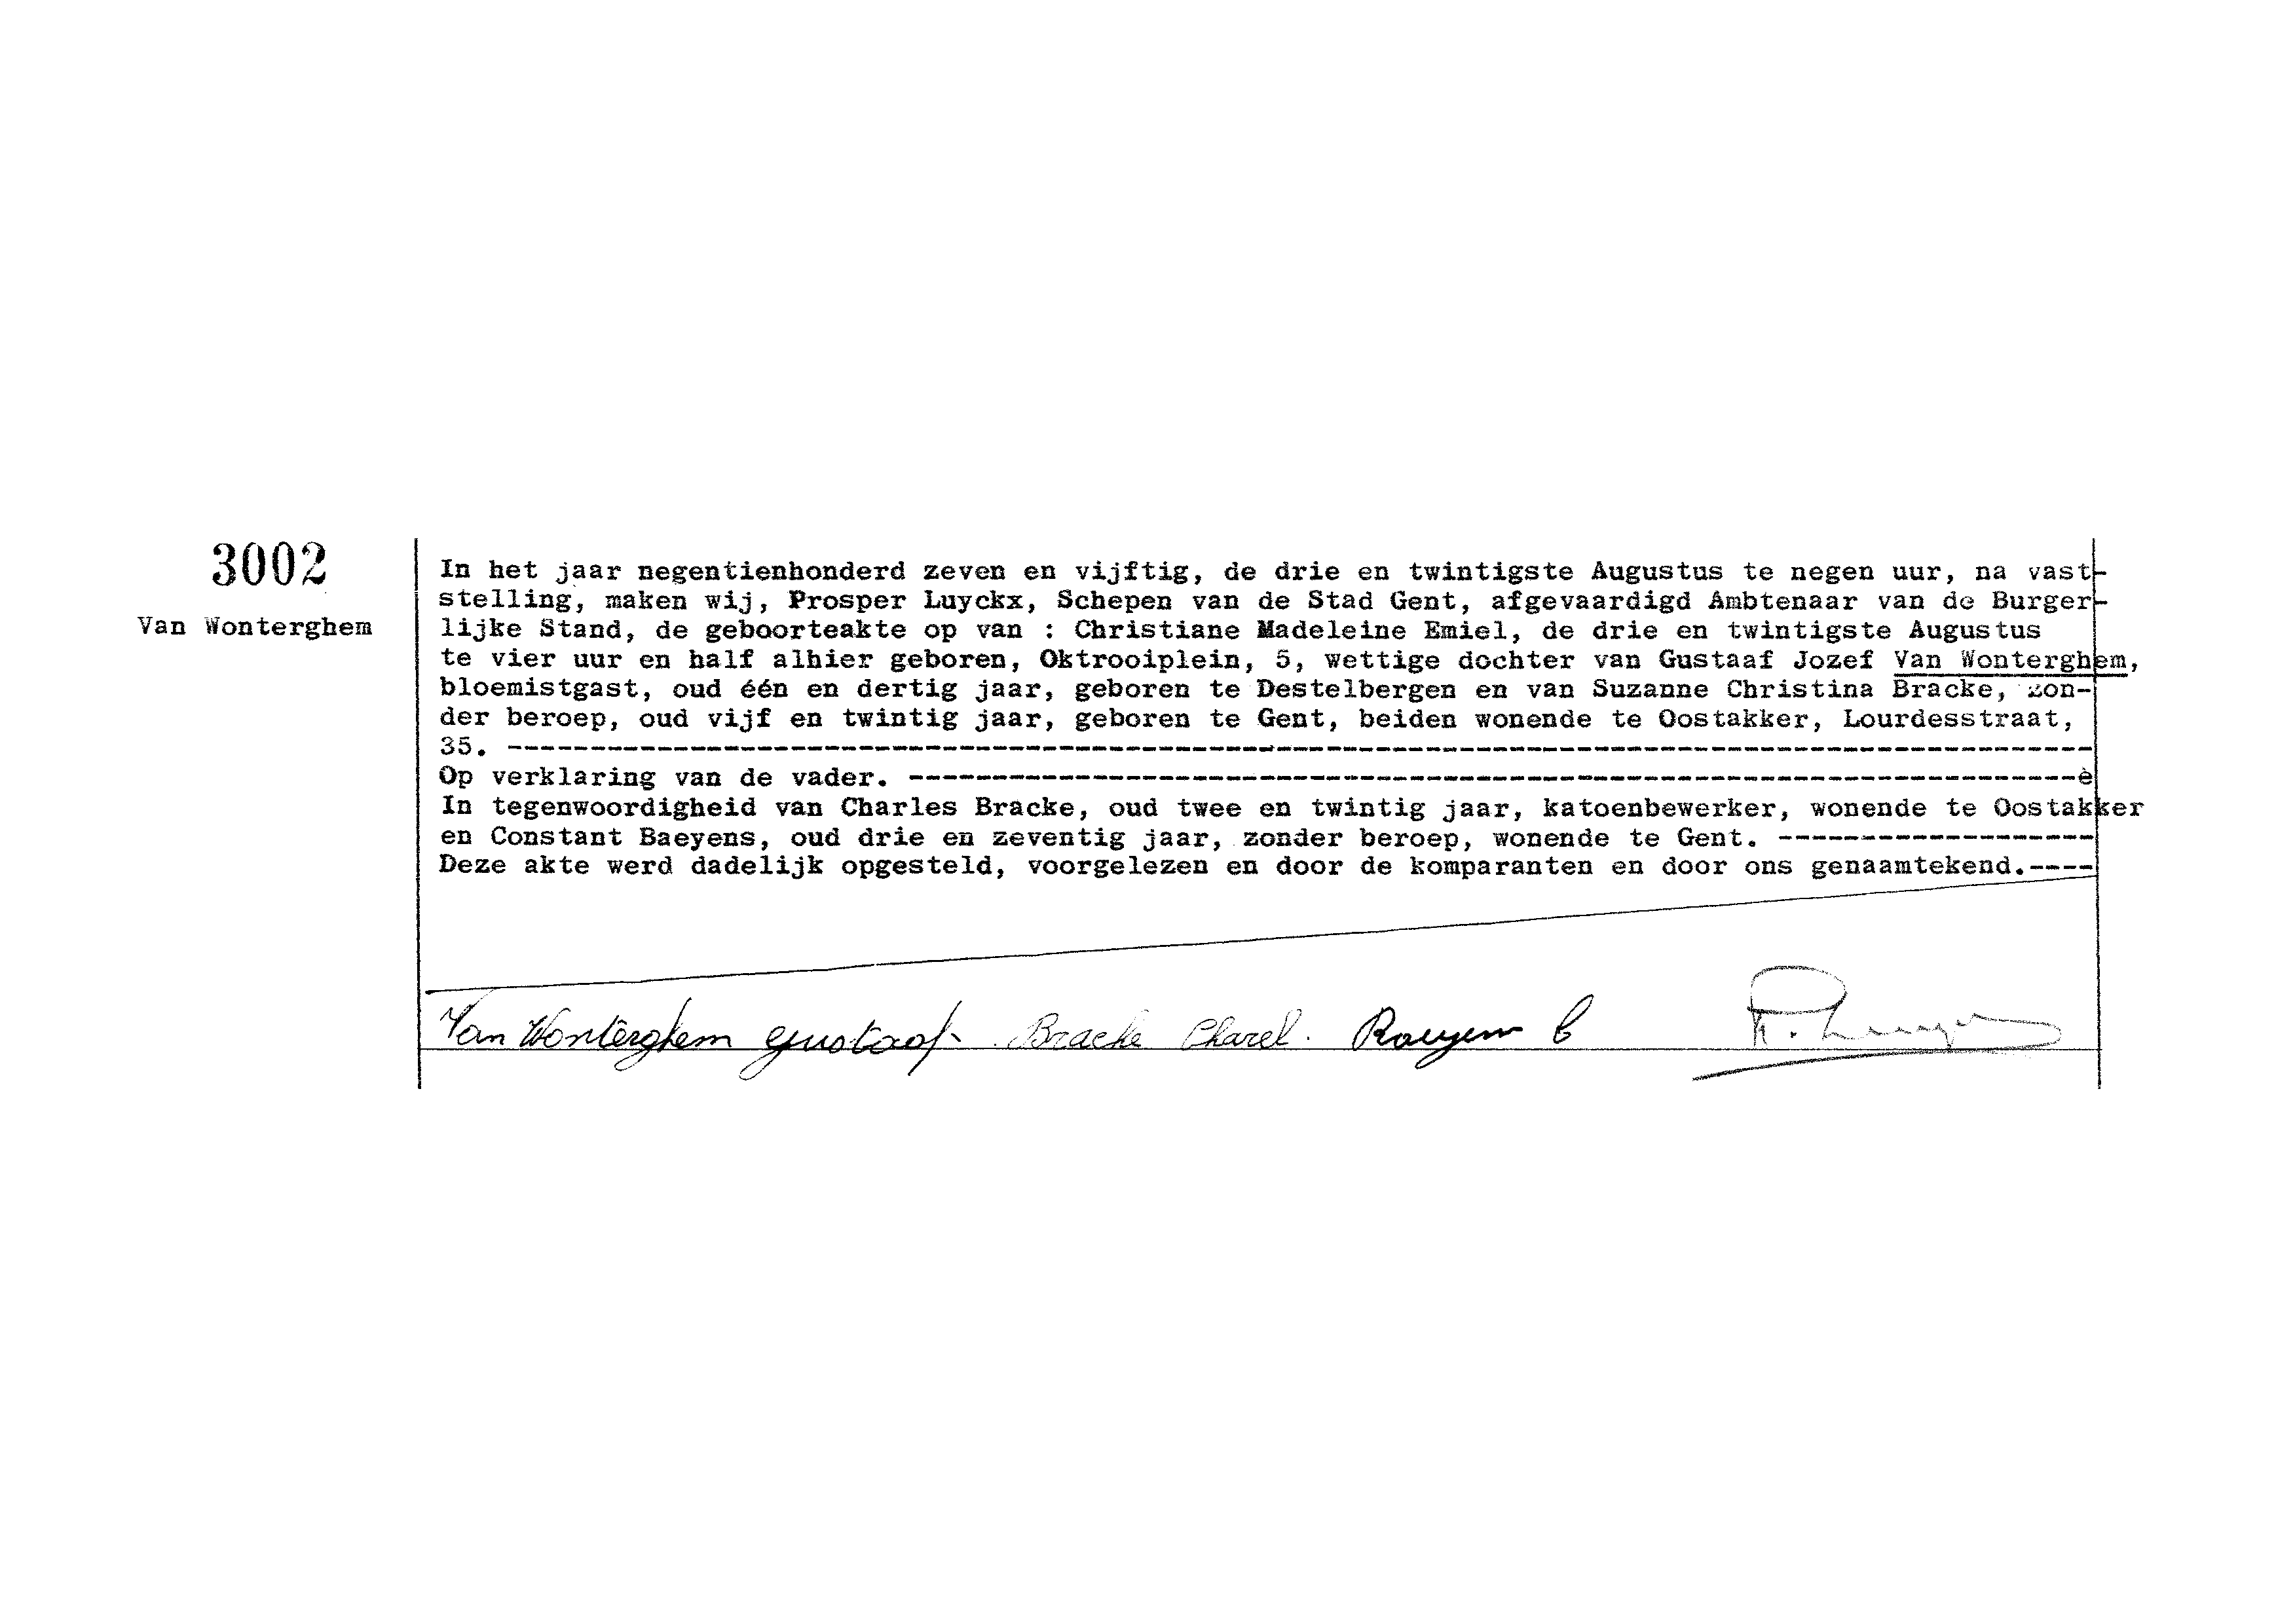 3002
Van Wonterghem
In het jaar negentienhonderd zeven en vijftig, de drie en twintigste Augustus te negen uur, na vast-
stelling, maken wij, Prosper Luyckx, Schepen van de Stad Gent, afgevaardigd Ambtenaar van de Burger-
lijke Stand, de geboorteakte op van : Christiane Madeleine Emiel, de drie en twintigste Augustus
te vier uur en half alhier geboren, Oktrooiplein, 5, wettige dochter van Gustaaf Jozef Van Wonterghem,
bloemistgast, oud één en dertig jaar, geboren te Destelbergen en van Suzanne Christina Bracke, zon-
der beroep, oud vijf en twintig jaar, geboren te Gent, beiden wonende te Oostakker, Lourdesstraat,
35. ------------------------------------------------------------------------------------------------
Op verklaring van de vader. ----------------------------------------------------------------------è
In tegenwoordigheid van Charles Bracke, oud twee en twintig jaar, katoenbewerker, wonende te Oostakker
en Constant Baeyens, oud drie en zeventig jaar, zonder beroep, wonende te Gent. -------------------
Deze akte werd dadelijk opgesteld, voorgelezen en door de komparanten en door ons genaamtekend.----
Van Wonterghem Gustaaf. Bracke Charel.